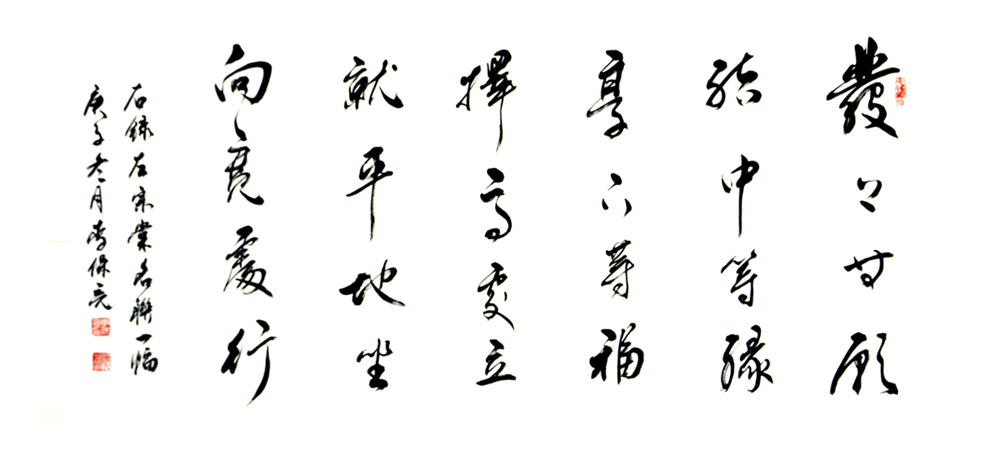 發上等願
結中等緣
享下等福
擇高處立
就平地坐
向寬處行
右録左宗棠名聯一幅
庚子冬月李保亮